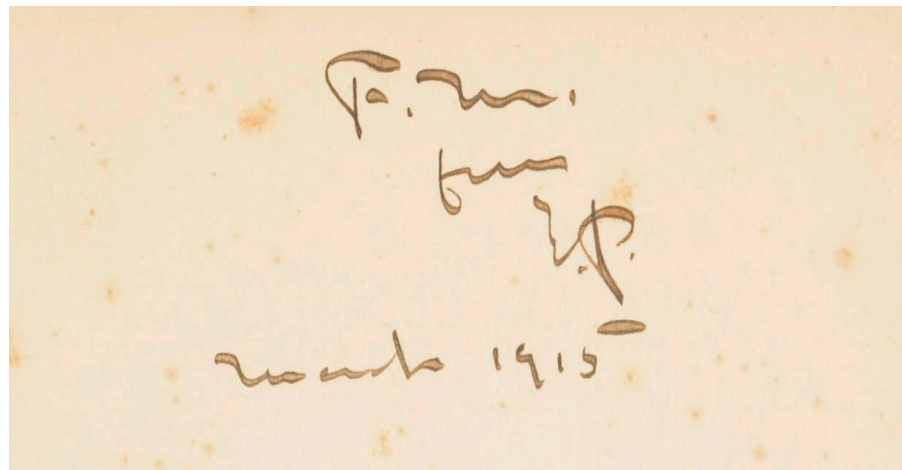 F. M.
from
V.P.
March 1915